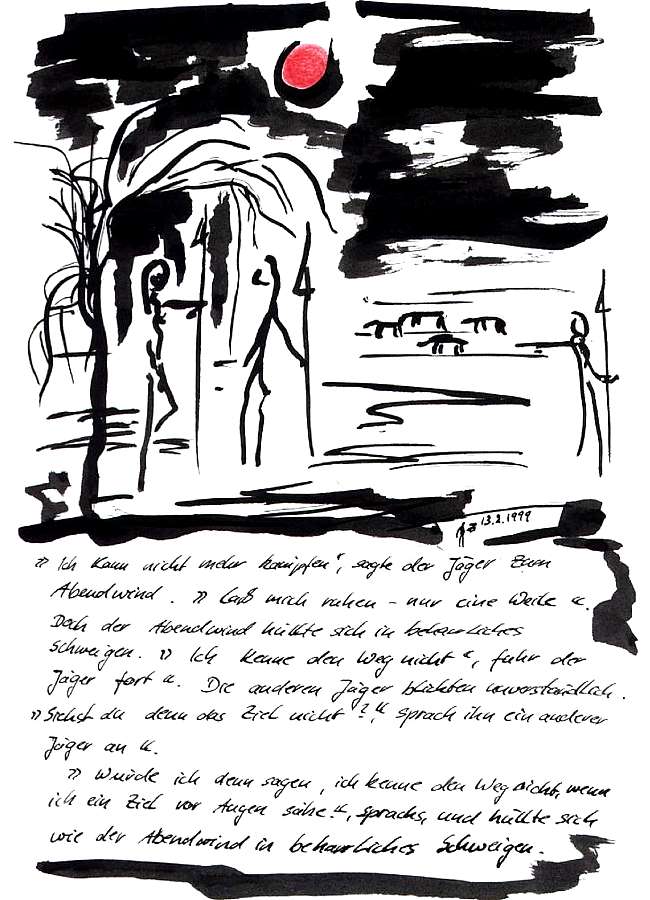 13.2.1999
» Ich kann nicht mehr kämpfen“, sagte der Jäger zum
Abendwind. » Laß mich ruhen – nur eine Weile «.
Doch der Abendwind hüllte sich in beharrliches
Schweigen. » Ich kenne den Weg nicht “, fuhr der
Jäger fort «. Die anderen Jäger blickten unverständlich.
» Siehst du denn das Ziel nicht ? “, sprach ihn ein anderer
Jäger an «.
» Würde ich denn sagen, ich kenne den Weg nicht, wenn
ich ein Ziel vor Augen sähe “, sprachs, und hüllte sich
wie der Abendwind in beharrliches Schweigen.